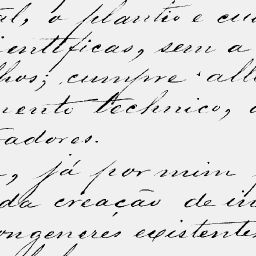 al, o plantio e cu
ientificas, sem a
lhos; cumpre all
mento technico, 
adores.
já por mim
da creação de in
ongeneres existente